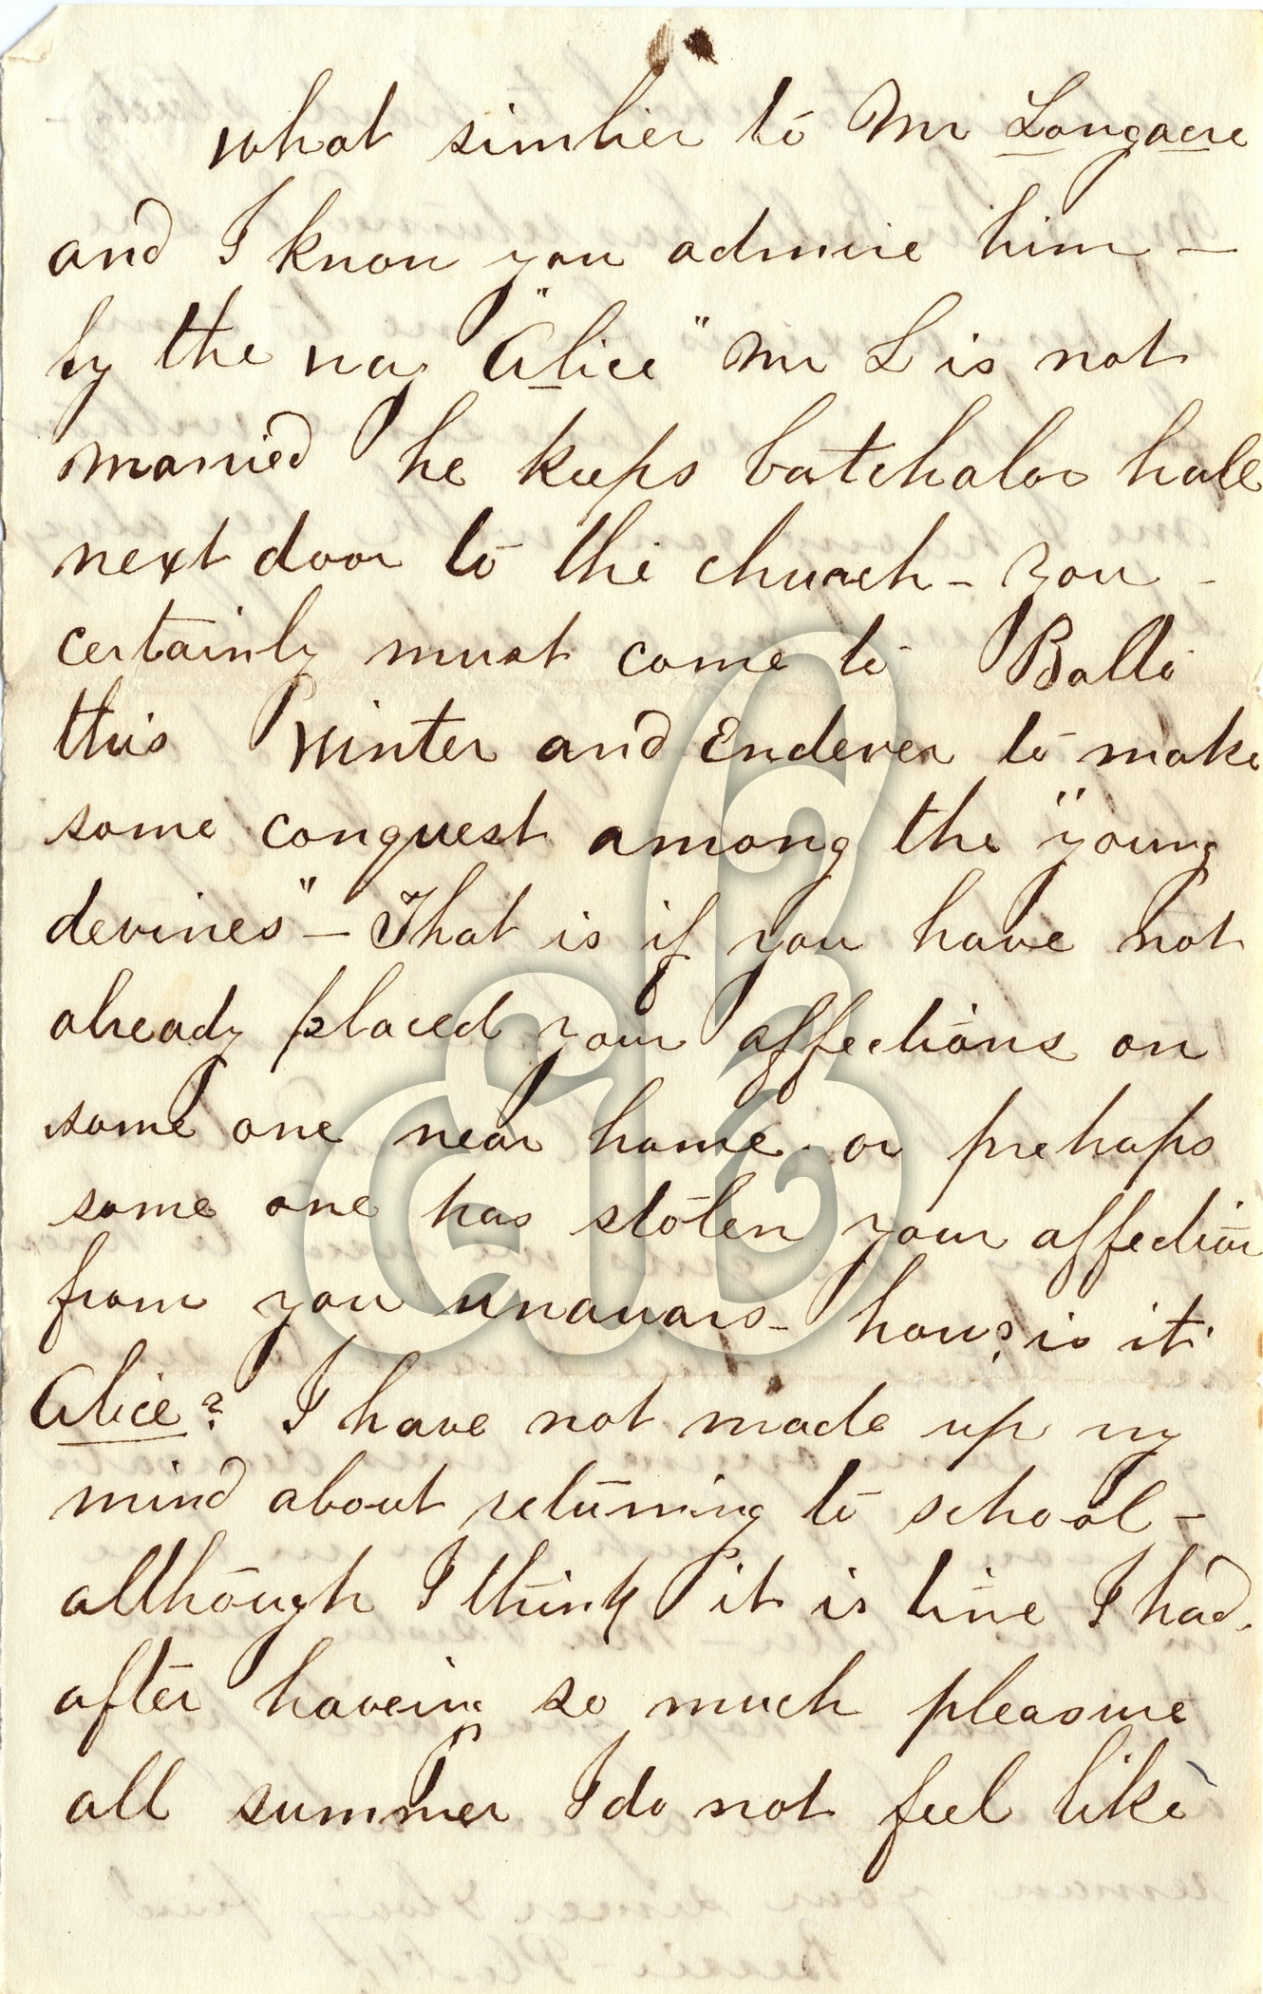 what similier to Mr Longacre
and I know you admire him –
by the way "Alice" Mr L is not
married he keeps batchalor hall
next door to the church – You –
certainly must come to Balto
this Winter and Endever to make
some conquest among the "young
devines" – That is if you have not
already placed your affections on
some one near home or prehaps
some one has stolen your affection
from you unawars – how? is it
Alice? I have not made up my
mind about returning to school –
although I think it is time I had.
after haveing so much pleasure
all summer I do not feel like